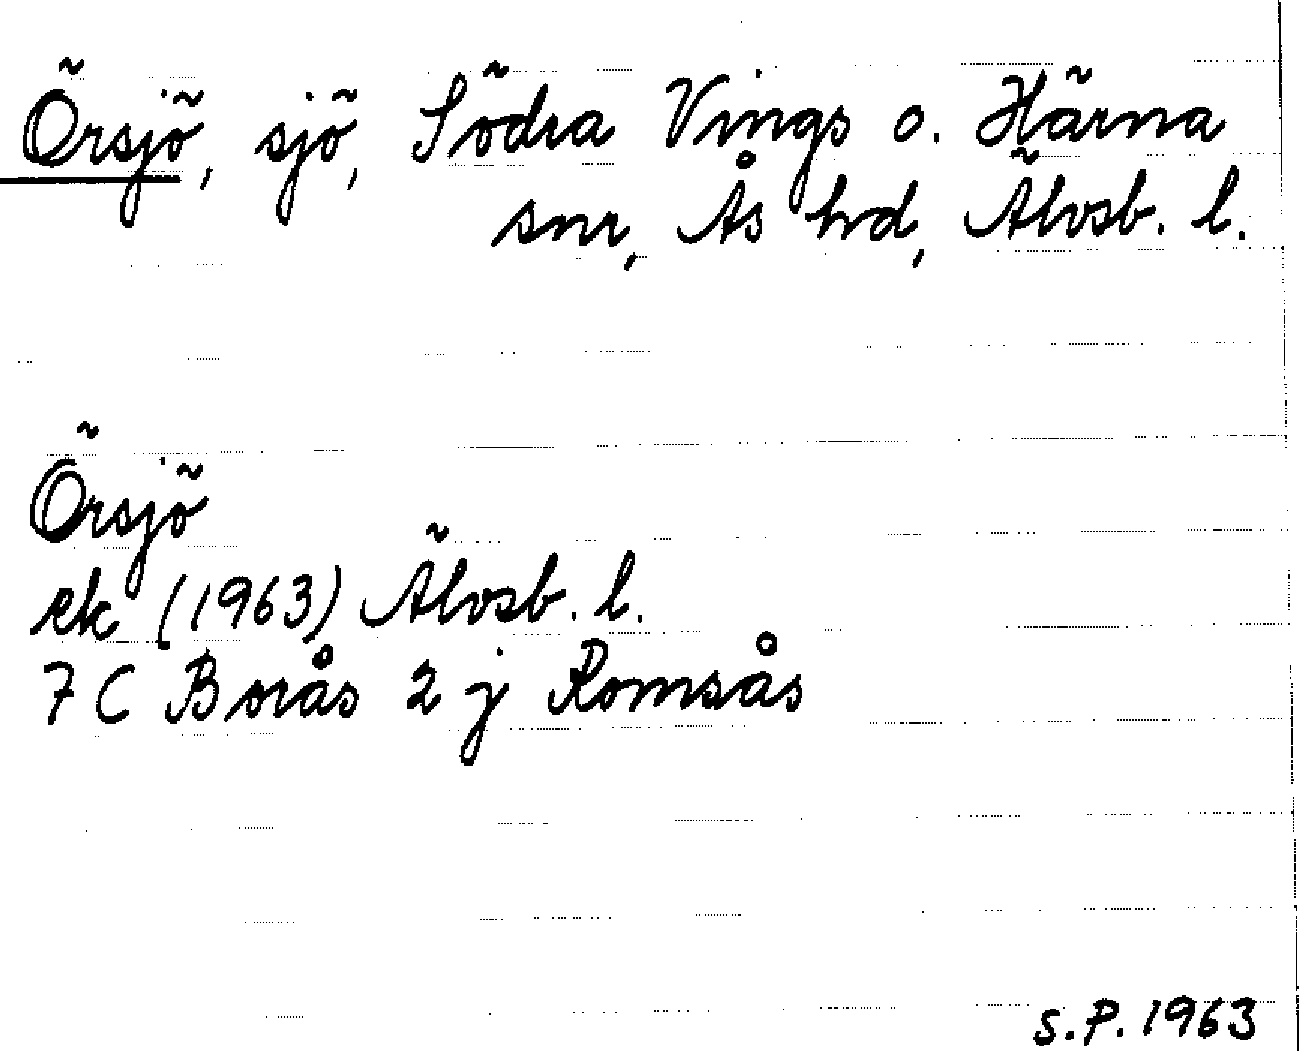 Örsjö, sjö, Södra Vings o. Härna
snr, Ås hd, Älvsb. l.
Örsjö
ek (1963) Älvsb. l.
7 C Borås 2 j Romsås
S.P. 1963